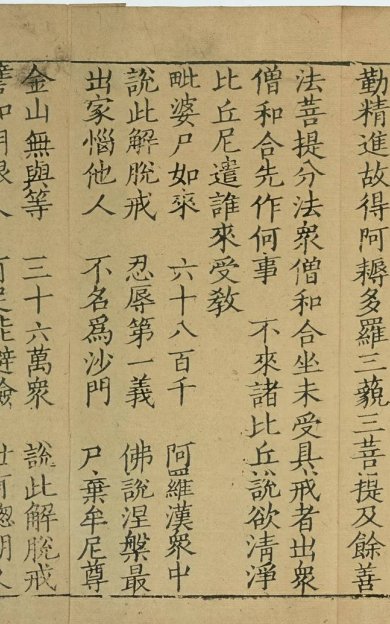 勤精進故得阿耨多羅三藐三菩提及餘善
法菩提分法衆僧和合坐未受具戒者出衆
僧和合先作何事　不來諸比丘說欲清淨
比丘尼遣誰來受教
毗婆尸如來　六十八百千　阿羅漢衆中
說此解脫戒　忍辱第一義　佛說涅槃最
出家惱他人　不名爲沙門　尸棄牟尼尊
金山無與等　三十六萬衆　說此解脫戒